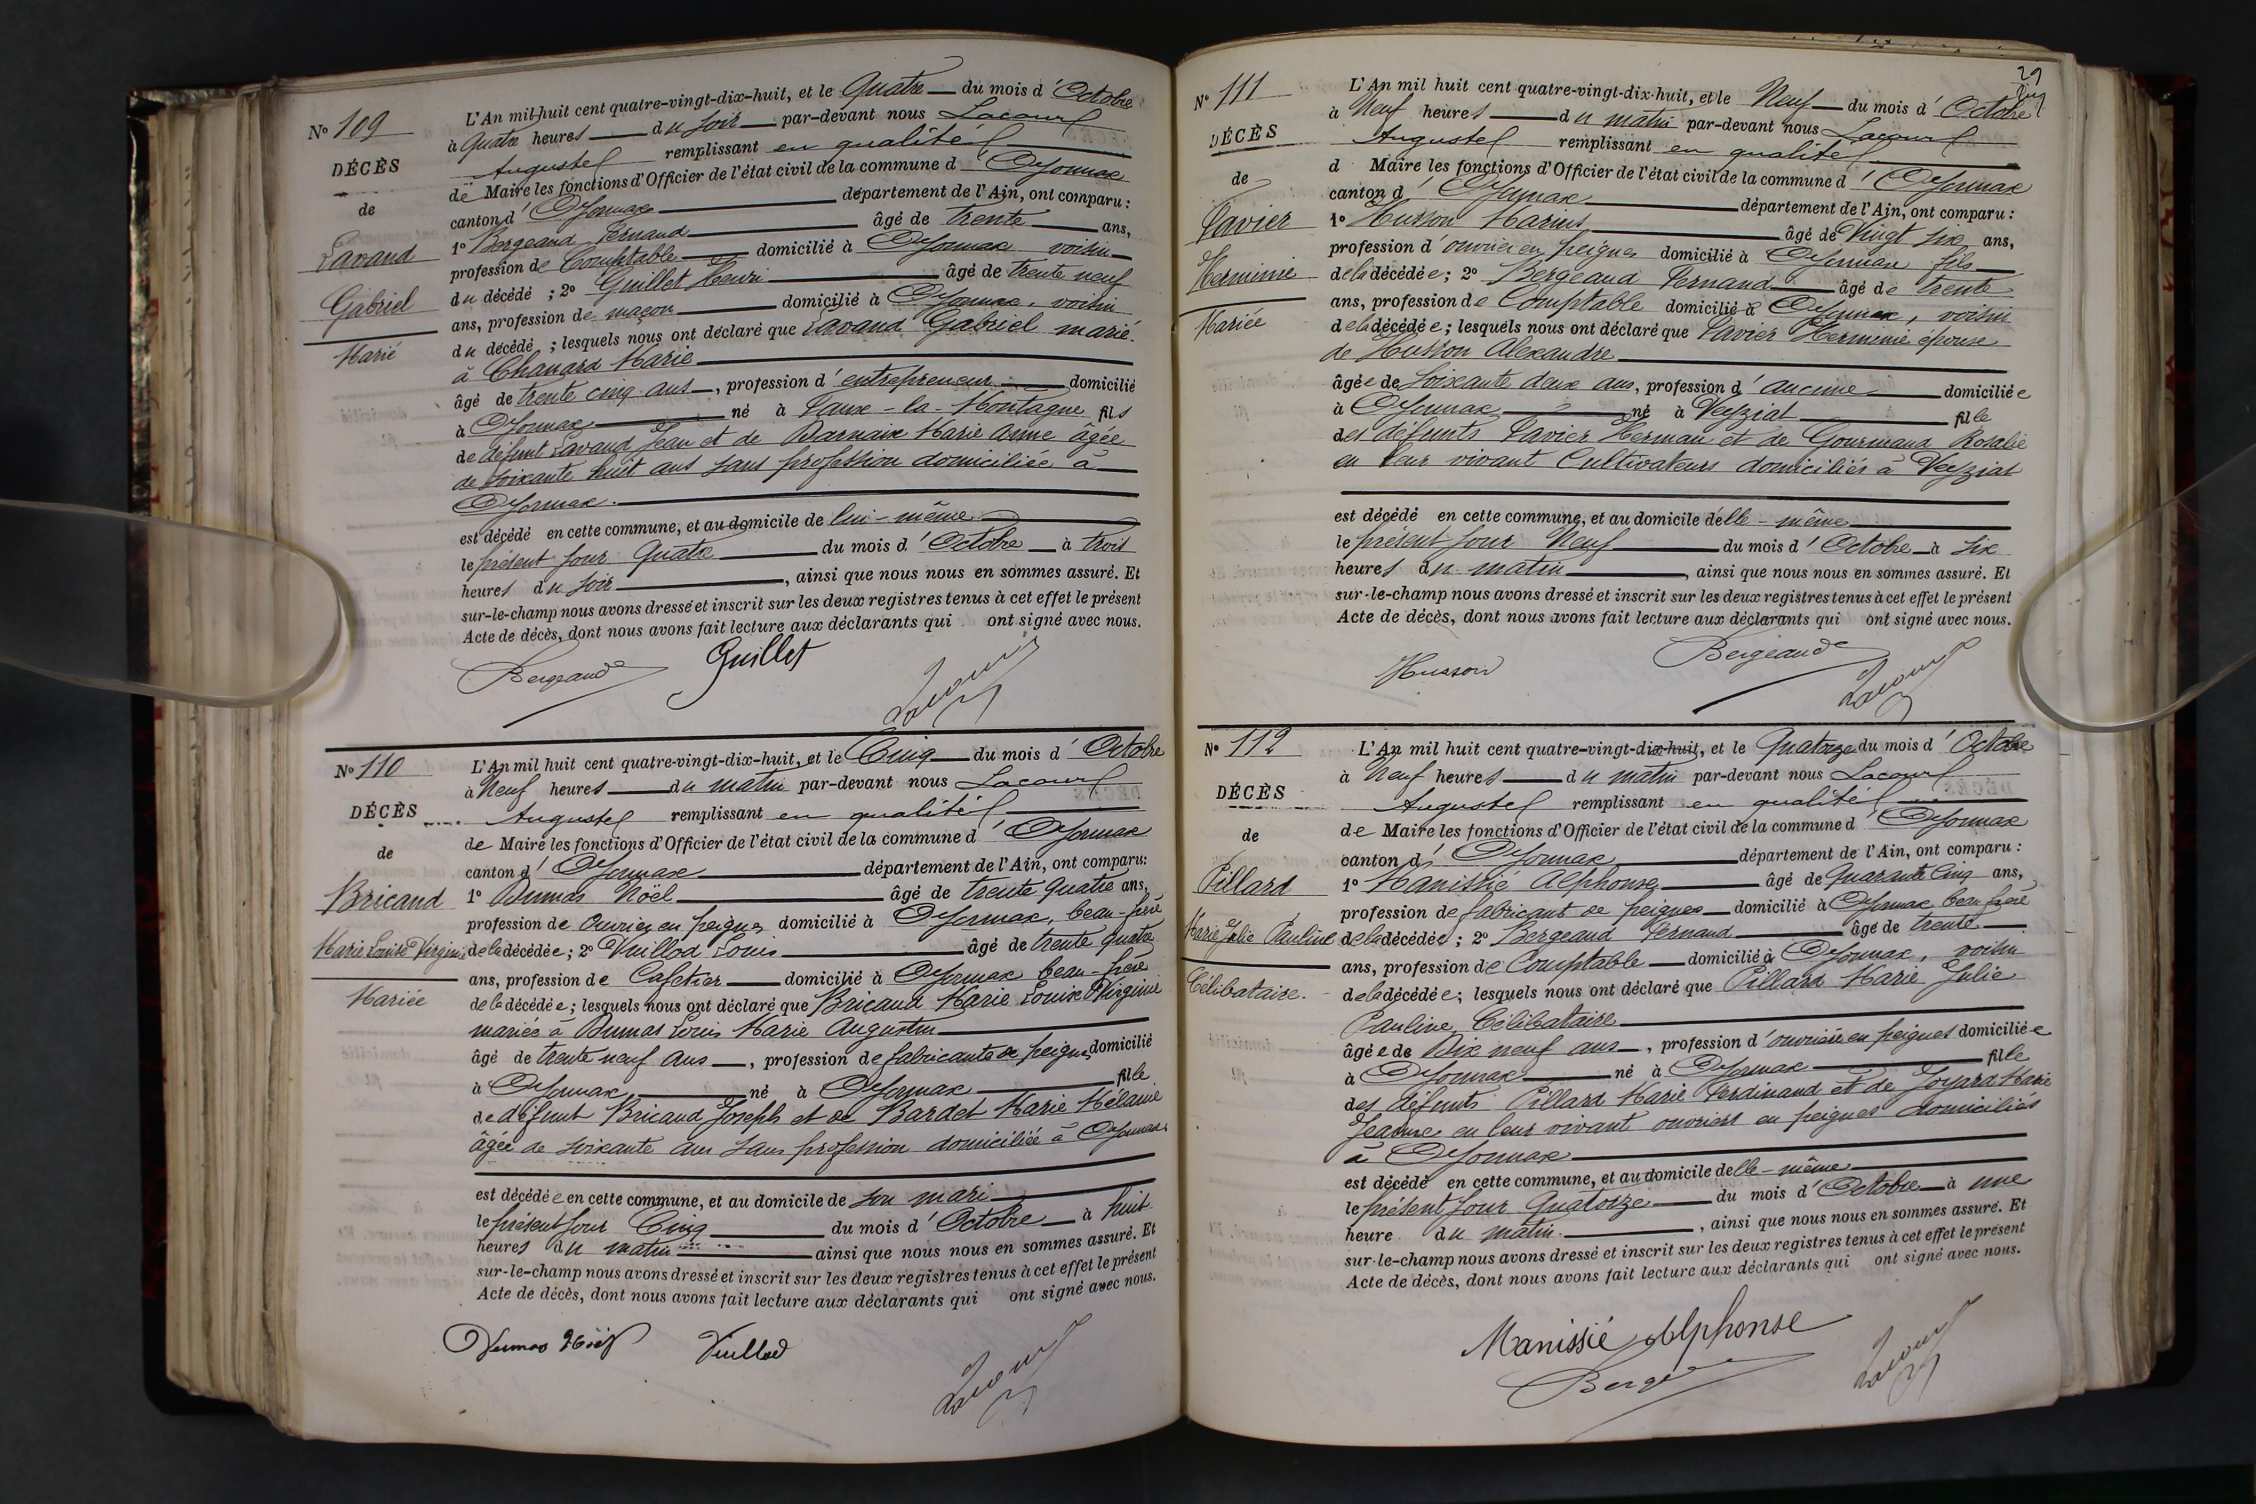 N° 109
DÉCÈS
de
Lavaud
Gabriel
Marié
L'An mil-huit cent quatre-vingt-dix-huit, et le Quatre du mois d' Octobre
à Quatre heures du soir par-devant nous Lacour
Auguste remplissant en qualité
de Maire les fonctions d'Officier de l'état civil de la commune d' Oyonnax
canton d' Oyonnax département de l'Ain, ont comparu :
1° Bergeaud Fernand âgé de trente ans,
profession de Comptable domicilié à Oyonnax voisin
du décédé ; 2° Guillet Henri âgé de trente neuf
ans, profession de maçon domicilié à Oyonnax, voisin
du décédé ; lesquels nous ont déclaré que Lavaud Gabriel marié
à Chanard Marie
âgé de trente cinq ans, profession d' entrepreneur domicilié
à Oyonnax né à Vaux-la-Montagne fils
de défunt Lavaud Jean et de Darnaix Marie Anne âgée
de soixante huit ans sans profession domiciliée à
Oyonnax.
est décédé en cette commune, et au domicile de lui-même
le présent jour Quatre du mois d' Octobre à trois
heures du soir, ainsi que nous nous en sommes assuré. Et
sur-le-champ nous avons dressé et inscrit sur les deux registres tenus à cet effet le présent
Acte de décès, dont nous avons fait lecture aux déclarants qui ont signé avec nous.
Bergeaud Guillet Lacour
N° 110
DÉCÈS
de
Bricaud
Marie Louise Virginie
Mariée
L'An mil huit cent quatre-vingt-dix-huit, et le Cinq du mois d' Octobre
à Neuf heures du matin par-devant nous Lacour
Auguste remplissant en qualité
de Maire les fonctions d'Officier de l'état civil de la commune d' Oyonnax
canton d' Oyonnax département de l'Ain, ont comparu:
1° Dumas Noël âgé de trente quatre ans,
profession de ouvrier en peignes domicilié à Oyonnax, beau-frère
de la décédée ; 2° Vuillod Louis âgé de trente quatre
ans, profession de Cafetier domicilié à Oyonnax beau-frère
de la décédée ; lesquels nous ont déclaré que Bricaud Marie Louise Virginie
mariée à Dumas Louis Marie Augustin
âgé de trente neuf ans, profession de fabricante de peignes domicilié
à Oyonnax né à Oyonnax fille
de défunt Bricaud Joseph et de Bardet Marie Mélanie
âgée de soixante ans sans profession domiciliée à Oyonnax
est décédée en cette commune, et au domicile de son mari
le présent jour Cinq du mois d' Octobre à huit
heures du matin ainsi que nous nous en sommes assuré. Et
sur-le-champ nous avons dressé et inscrit sur les deux registres tenus à cet effet le présent
Acte de décès, dont nous avons fait lecture aux déclarants qui ont signé avec nous.
Dumas Noël Vuillod Lacour
29
N° 111
DÉCÈS
de
Pavier
Herminie
Mariée
L'An mil huit cent quatre-vingt-dix-huit, et le Neuf du mois d' Octobre
à Neuf heures du matin par-devant nous Lacour
Auguste remplissant en qualité
d Maire les fonctions d'Officier de l'état civil de la commune d' Oyonnax
canton d' Oyonnax département de l'Ain, ont comparu :
1° Husson Marius âgé de Vingt six ans,
profession d' ouvrier en peignes domicilié à Oyonnax fils
de la décédée ; 2° Bergeaud Fernand âgé de trente
ans, profession de Comptable domicilié à Oyonnax, voisin
de la décédée ; lesquels nous ont déclaré que Pavier Herminie épouse
de Husson Alexandre
âgée de soixante deux ans, profession d' aucune domiciliée
à Oyonnax né à Veyziat fille
des défunts Pavier Herman et de Gourmand Rosalie
en leur vivant Cultivateurs domiciliés à Veyziat
est décédé en cette commune, et au domicile d'elle-même
le présent jour Neuf du mois d' Octobre à six
heures du matin, ainsi que nous nous en sommes assuré. Et
sur-le-champ nous avons dressé et inscrit sur les deux registres tenus à cet effet le présent
Acte de décès, dont nous avons fait lecture aux déclarants qui ont signé avec nous.
Husson Bergeaud Lacour
N° 112
DÉCÈS
de
Pillard
Marie Julie Pauline
Célibataire.
L'An mil huit cent quatre-vingt-dix-huit, et le Quatorze du mois d' Octobre
à Neuf heures du matin par-devant nous Lacour
Auguste remplissant en qualité
de Maire les fonctions d'Officier de l'état civil de la commune d' Oyonnax
canton d' Oyonnax département de l'Ain, ont comparu :
1° Manissié Alphonse âgé de Quarante Cinq ans,
profession de fabricant de peignes domicilié à Oyonnax beau frère
de la décédée ; 2° Bergeaud Fernand âgé de trente
ans, profession de Comptable domicilié à Oyonnax, voisin
de la décédée ; lesquels nous ont déclaré que Pillard Marie Julie
Pauline, Célibataire
âgée de Dix neuf ans, profession d' ouvrière en peignes domiciliée
à Oyonnax né à Oyonnax fille
des défunts Pillard Marie Ferdinand et de Joyard Marie
Jeanne en leur vivant ouvriers en peignes domiciliés
à Oyonnax
est décédé en cette commune, et au domicile d'elle-même
le présent jour Quatorze du mois d' Octobre à une
heure du matin, ainsi que nous nous en sommes assuré. Et
sur-le-champ nous avons dressé et inscrit sur les deux registres tenus à cet effet le présent
Acte de décès, dont nous avons fait lecture aux déclarants qui ont signé avec nous.
Manissié Alphonse
Lacour